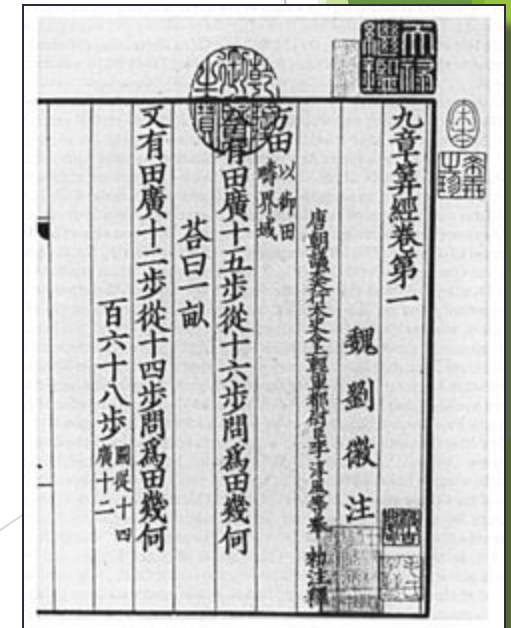 天祿繼鑑
九章筭經卷第一
魏劉徽注
唐朝議大夫行太史令上輕車都尉臣李淳風等奉 勑注釋
乾隆御覽之寶
方田以御田疇界域
今有田廣十五步從十六步問爲田幾何
荅曰一畝
又有田廣十二步從十四步問爲田幾何
百六十八步圖從十四廣十二